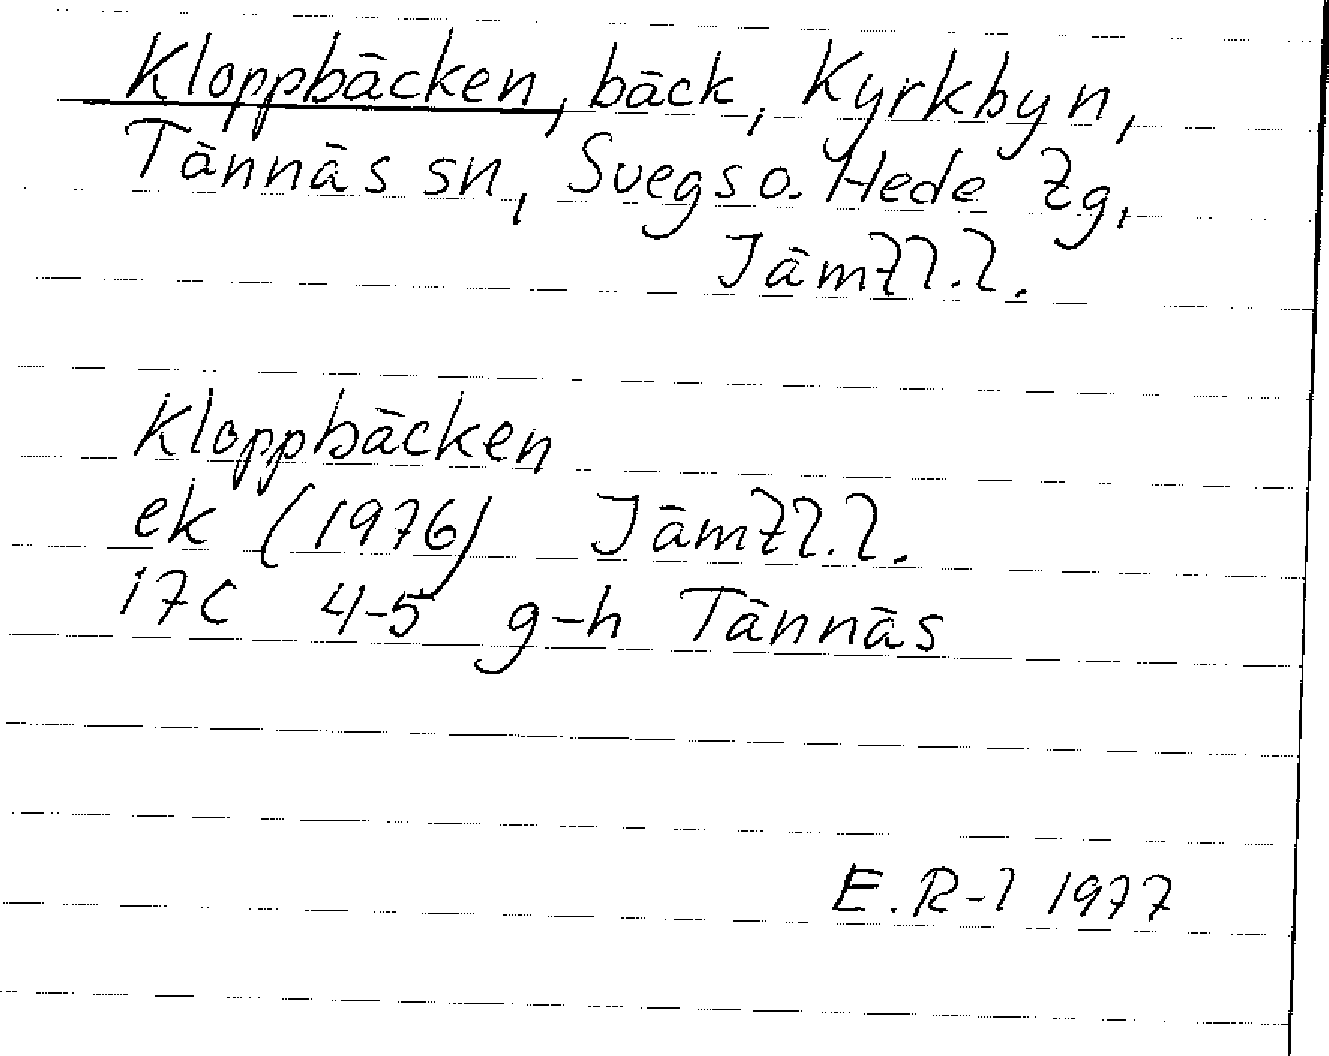 Kloppbäcken, bäck, Kyrkbyn,
Tännäs sn, Svegs o. Hede tg,
Jämtl.l.
Kloppbäcken
ek (1976) Jämtl.l.
17C 4-5 g-h Tännäs
E.R-l 1977